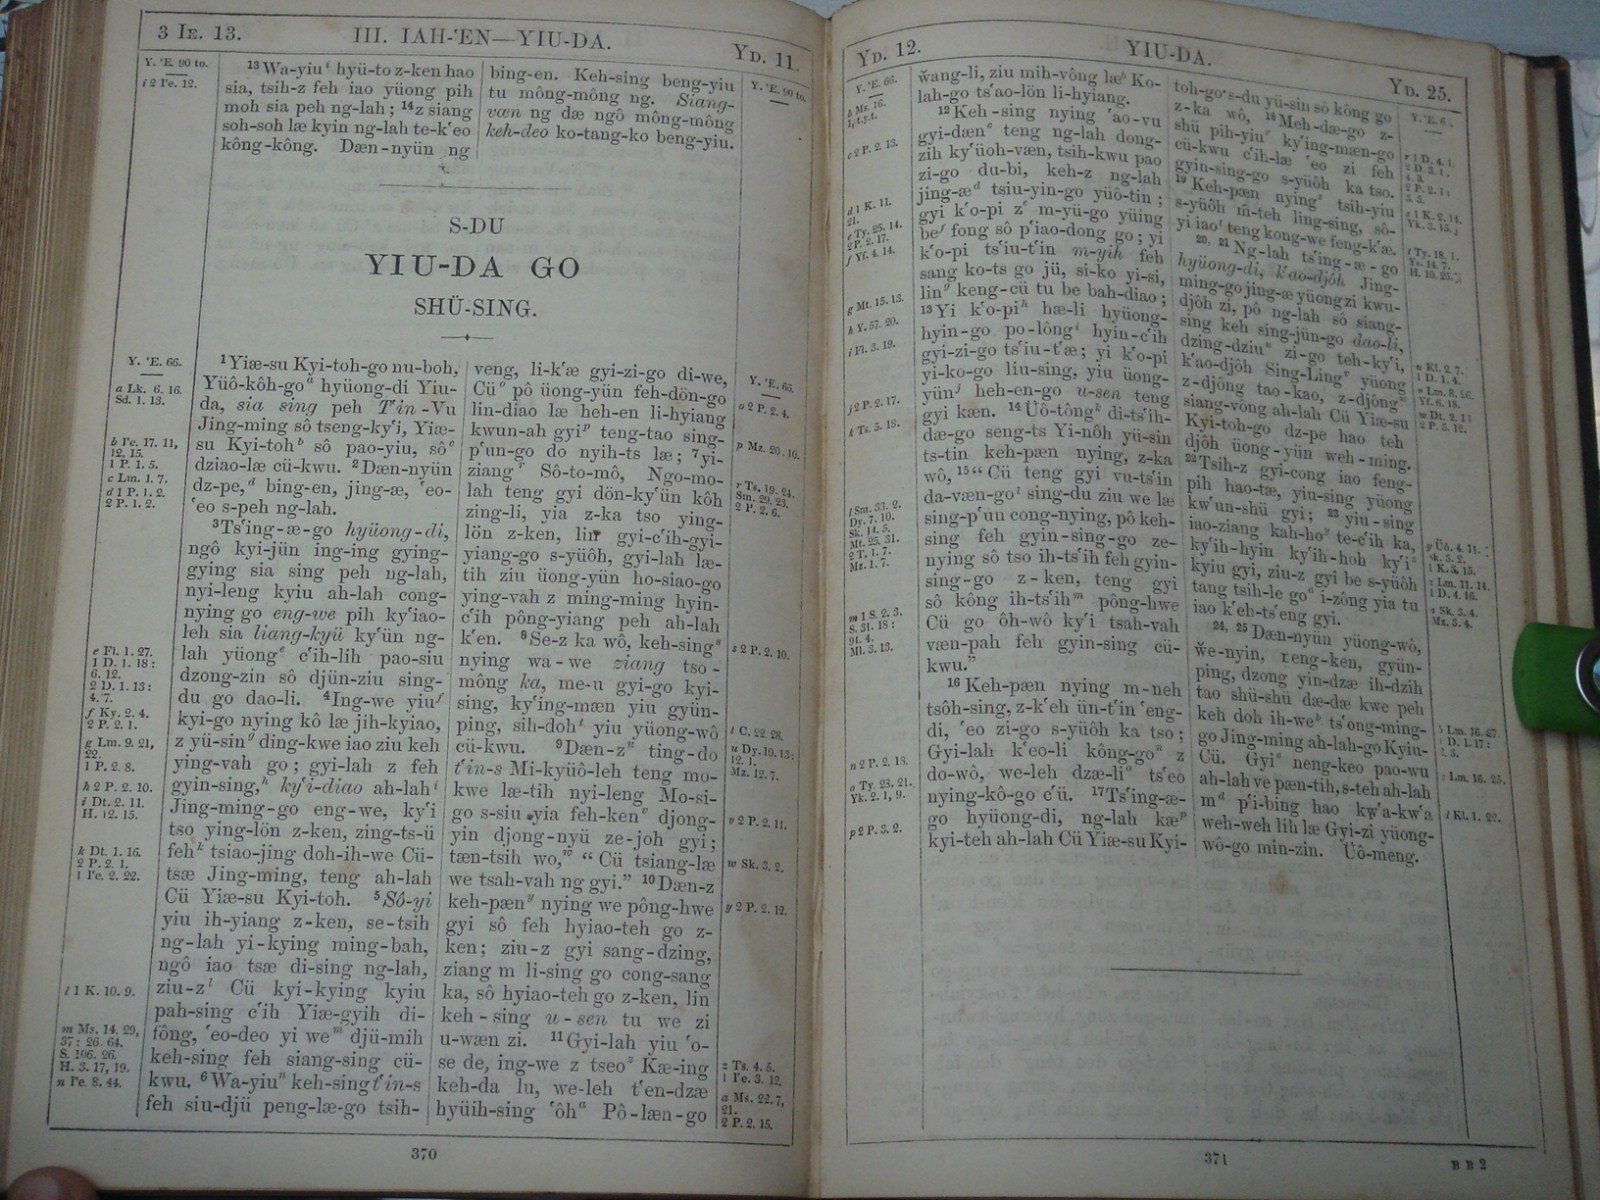 3 IE. 13.
III. IAH-'EN—YIU-DA.
YD. 11.
Y. 'E. 90 to.
i 2 I'e. 12.
13 Wa-yiu i hyü-to z-ken hao
sia, tsih-z feh iao yüong pih
moh sia peh ng-lah; 14 z siang
soh-soh læ kyin ng-lah te-k'eo
kông-kông. Dæn-nyün ng
bing-en. Keh-sing beng-yiu
tu mông-mông ng. Siang-
væn ng dæ ngô mông-mông
keh-deo ko-tang-ko beng-yiu.
Y. 'E. 90 to.
S-DU
YIU-DA GO
SHÜ-SING.
Y. 'E. 66.
a Lk. 6. 16.
Sd. 1. 13.
b I'e. 17. 11,
12. 15.
1 P. 1. 5.
c Lm. 1. 7.
d 1 P. 1. 2.
2 P. 1. 2.
e Fl. 1. 27.
1 D. 1. 18:
6. 12.
2 D. 1. 13:
4. 7.
f Ky. 2. 4.
2 P. 2. 1.
g Lm. 9. 21,
22.
1 P. 2. 8.
h 2 P. 2. 10.
i Dt. 2. 11.
H. 12. 15.
k Dt. 1. 16.
2 P. 2. 1.
1 I'e. 2. 22.
l 1 K. 10. 9.
m Ms. 14. 29,
37: 26. 64.
S. 106. 26.
H. 3. 17, 19.
n I'e. 8. 44.
1 Yiæ-su Kyi-toh-go nu-boh,
Yüô-kôh-go a hyüong-di Yiu-
da, sia sing peh T'in-Vu
Jing-ming sô tseng-ky'i, Yiæ-
su Kyi-toh b sô pao-yiu, sô c
dziao-læ cü-kwu. 2 Dæn-nyün
dz-pe, d bing-en, jing-æ, 'eo-
'eo s-peh ng-lah.
3 Ts'ing-æ-go hyüong-di,
ngô kyi-jün ing-ing gying-
gying sia sing peh ng-lah,
nyi-leng kyiu ah-lah cong-
nying go eng-we pih ky'iao-
leh sia liang-kyü ky'ün ng-
lah yüong e c'ih-lih pao-siu
dzong-zin sô djün-ziu sing-
du go dao-li. 4 Ing-we yiu f
kyi-go nying kô læ jih-kyiao,
z yü-sin g ding-kwe iao ziu keh
ying-vah go; gyi-lah z feh
gyin-sing, h ky'i-diao ah-lah i
Jing-ming-go eng-we, ky'i
tso ying-lön z-ken, zing-ts-ü
feh k tsiao-jing doh-ih-we Cü-
tsæ Jing-ming, teng ah-lah
Cü Yiæ-su Kyi-toh. 5 Sô-yi
yiu ih-yiang z-ken, se-tsih
ng-lah yi-kying ming-bah,
ngô iao tsæ di-sing ng-lah,
ziu-z l Cü kyi-kying kyiu
pah-sing c'ih Yiæ-gyih di-
fông, 'eo-deo yi we m djü-mih
keh-sing feh siang-sing cü-
kwu. 6 Wa-yiu n keh-sing t'in-s
feh siu-djü peng-læ-go tsih-
veng, li-k'æ gyi-zi-go di-we,
Cü o pô üong-yün feh-dön-go
lin-diao læ heh-en li-hyiang
kwun-ah gyi p teng-tao sing-
p'un-go do nyih-ts læ; 7 yi-
ziang r Sô-to-mô, Ngo-mo-
lah teng gyi dön-ky'ün kôh
zing-li, yia z-ka tso ying-
lön z-ken, lin gyi-c'ih-gyi-
yiang-go s-yüôh, gyi-lah læ-
tih ziu üong-yün ho-siao-go
ying-vah z ming-ming hyin-
c'ih pông-yiang peh ah-lah
k'en. 8 Se-z ka wô, keh-sing s
nying wa-we ziang tso-
mông ka, me-u gyi-go kyi-
sing, ky'ing-mæn yiu gyün-
ping, sih-doh t yiu yüong-wô
cü-kwu. 9 Dæn-z u ting-do
t'in-s Mi-kyüô-leh teng mo-
kwe læ-tih nyi-leng Mo-si-
go s-siu yia feh-ken v djong-
yin djong-nyü ze-joh gyi;
tæn-tsih wo, w “Cü tsiang-læ
we tsah-vah ng gyi.” 10 Dæn-z
keh-pæn y nying we pông-hwe
gyi sô feh hyiao-teh go z-
ken; ziu-z gyi sang-dzing,
ziang m li-sing go cong-sang
ka, sô hyiao-teh go z-ken, lin
keh-sing u-sen tu we zi
u-wæn zi. 11 Gyi-lah yiu 'o-
se de, ing-we z tseo z Kæ-ing
keh-da lu, we-leh t'en-dzæ
hyüih-sing 'ôh a Pô-læn-go
Y. 'E. 66.
o 2 P. 2. 4.
p Mz. 20. 10.
r Ts. 19. 24.
Sm. 29. 23.
2 P. 2. 6.
s 2 P. 2. 10.
t C. 22. 28.
u Dy. 10. 13:
12. 1.
Mz. 12. 7.
v 2 P. 2. 11.
w Sk. 3. 2.
y 2 P. 2. 12.
z Ts. 4. 5.
1 I'e. 3. 12.
a Ms. 22. 7,
21.
2 P. 2. 15.
370
YD. 12.
YIU-DA.
YD. 25.
Y. 'E. 66.
b Ms. 16.
1, t.y.t.
c 2 P. 2. 13.
d 1 K. 11.
21.
e Ty. 25. 14.
2 P. 2. 17.
f Yf. 4. 14.
g Mt. 15. 13.
h Y. 57. 20.
i Fl. 3. 19.
j 2 P. 2. 17.
k Ts. 5. 18.
l Sm. 33. 2.
Dy. 7. 10.
Sk. 14. 5.
Mt. 25. 31.
2 T. 1. 7.
Mz. 1. 7.
m 1 S. 2. 3.
S. 31. 18:
94. 4.
Ml. 3. 13.
n 2 P. 2. 18.
o Ty. 23. 21.
Yk. 2. 1, 9.
p 2 P. 3. 2.
wang-li, ziu mih-vông læ b Ko-
lah-go ts'ao-lön li-hyiang.
12 Keh-sing nying 'ao-vu
gyi-dæn c teng ng-lah dong-
zih ky'üoh-væn, tsih-kwu pao
zi-go du-bi, keh-z ng-lah
jing-æ d tsiu-yin-go yüô-tin;
gyi k'o-pi z e m-yü-go yüing
be f fong sô p'iao-dong go; yi
k'o-pi ts'iu-t'in m-yih feh
sang ko-ts go jü, si-ko yi-si,
lin g keng-cü tu be bah-diao;
13 Yi k'o-pi h hæ-li hyüong-
hyin-go po-lông i hyin-c'ih
gyi-zi-go ts'iu-t'æ; yi k'o-pi
yi-ko-go liu-sing, yiu üong-
yün j heh-en-go u-sen teng
gyi kæn. 14 Üô-tông k di-ts'ih-
dæ-go seng-ts Yi-nôh yü-sin
ts-tin keh-pæn nying, z-ka
wô, 15 “Cü teng gyi vu-ts'in
da-væn-go l sing-du ziu we læ
sing-p'un cong-nying, pô keh-
sing feh gyin-sing-go ze-
nying sô tso ih-ts'ih feh gyin-
sing-go z-ken, teng gyi
sô kông ih-ts'ih m pông-hwe
Cü go ôh-wô ky'i tsah-vah
væn-pah feh gyin-sing cü-
kwu.”
16 Keh-pæn nying m-neh
tsôh-sing, z-k'eh ün-t'in 'eng-
di, 'eo zi-go s-yüôh ka tso;
Gyi-lah k'eo-li kông-go n z
do-wô, we-leh dzæ-li o ts'eo
nying-kô-go c'ü. 17 Ts'ing-æ-
go hyüong-di, ng-lah kæ p
kyi-teh ah-lah Cü Yiæ-su Kyi-
toh-go s-du yü-sin sô kông go
z-ka wô, 18 Meh-dæ-go z-
shü pih-yiu r ky'ing-mæn-go
cü-kwu c'ih-læ 'eo zi feh
gyin-sing-go s-yüôh ka tso.
19 Keh-pæn nying s tsih-yiu
s-yüôh m-teh ling-sing, sô-
yi iao t teng kong-we feng-k'æ.
20, 21 Ng-lah ts'ing-æ-go
hyüong-di, k'ao-djôh Jing-
ming-go jing-æ yüong zi kwu-
djôh zi, pô ng-lah sô siang-
sing keh sing-jün-go dao-li,
dzing-dziu u zi-go teh-ky'i,
k'ao-djôh Sing-Ling v yüong
z-djông tao-kao, z-djông w
siang-vông ah-lah Cü Yiæ-su
Kyi-toh-go dz-pe hao teh
djôh üong-yün weh-ming.
22 Tsih-z gyi-cong iao feng-
pih hao-tæ, yiu-sing yüong
kw'un-shü gyi; 23 yiu-sing
iao-ziang kah-ho y te-c'ih ka,
ky'ih-hyin ky'ih-hoh ky'i z
kyiu gyi, ziu-z gyi be s-yüôh
tang tsih-le go a i-zông yia tu
iao k'eh-ts'eng gyi.
24, 25 Dæn-nyün yüong-wô,
we-nyin, reng-ken, gyün-
ping, dzong yin-dzæ ih-dzih
tao shü-shü dæ-dæ kwe peh
keh doh ih-we b ts'ong-ming-
go Jing-ming ah-lah-go Kyiu-
Cü. Gyi c neng-keo pao-wu
ah-lah ve pæn-tih, s-teh ah-lah
m d p'i-bing hao kw'a-kw'a
weh-weh lih læ Gyi-zi yüong-
wô-go min-zin. Üô-meng.
r 1 D. 4. 1.
2 D. 3. 1,
4. 3.
2 P. 2. 1:
3. 3.
s 1 K. 2. 14.
Yk. 3. 15.
t Ty. 18. 1.
Ys. 14. 7.
H. 10. 25.
u Kl. 2. 7.
1 D. 1. 4.
v Lm. 8. 26.
Yf. 6. 18.
w Dt. 2. 13
2 P. 3. 12.
z Lm. 11. 14.
1 D. 4. 16.
a Sk. 3. 4.
Mz. 3. 4.
b Lm. 16. 27.
1 D. 1. 17:
c Lm. 16. 25.
d Kl. 1. 22.
371
B B 2